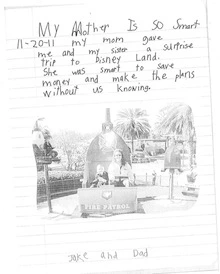 My Mother Is SO Smart
11-20-11 my mom gave
me and my sister a surprise
trip to Disney Land.
She was smart to save
money and make the plans
without us knowing.
FIRE PATROL
Jake and Dad